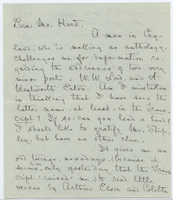 Dear Mr. Hart:
A man in Eng-
land, who is making an anthology,
challenges me for information re-
garding the whereabouts of two very
minor poets: W. W. Lord, and A.
Wentworth Eaton. Am I mistaken
in thinking that I have seen the
latter name, at least, in the Trans-
cript? If so, can you lend a hand?
I should like to gratify Mr. Ship-
ley, but have no other clue.
It gives me an
odd twinge, nowadays, (because it
seems only yesterday that the Trans-
cript " " me,) to read little
verses by Arthur and Colette